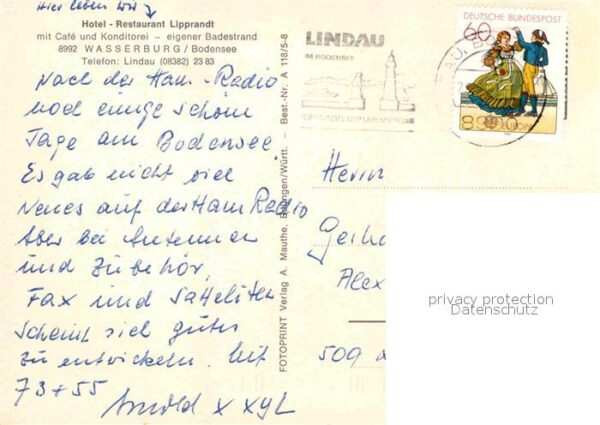 Hier leben wir
Hotel - Restaurant Lipprandt
mit Café und Konditorei – eigener Badestrand
8992 WASSERBURG / Bodensee
Telefon: Lindau (08382) 23 83
Nach der Ham-Radio
noch einige schöne
Tage am Bodensee
Es gab nicht viel
Neues auf der Ham Radio
Aber bei Antennen
und Zubehör,
Fax und Satteliten
scheint sich gutes
zu entwickeln. Mit
73 + 55
Arnold x xyL
FOTOPRINT Verlag A. Mauthe, Württ. – Best.-Nr. A 118/5-8
LINDAU
IM BODENSEE
DEUTSCHE BUNDESPOST
60
EUROPA
Herrn
Gerha
Alex
509
privacy protection
Datenschutz